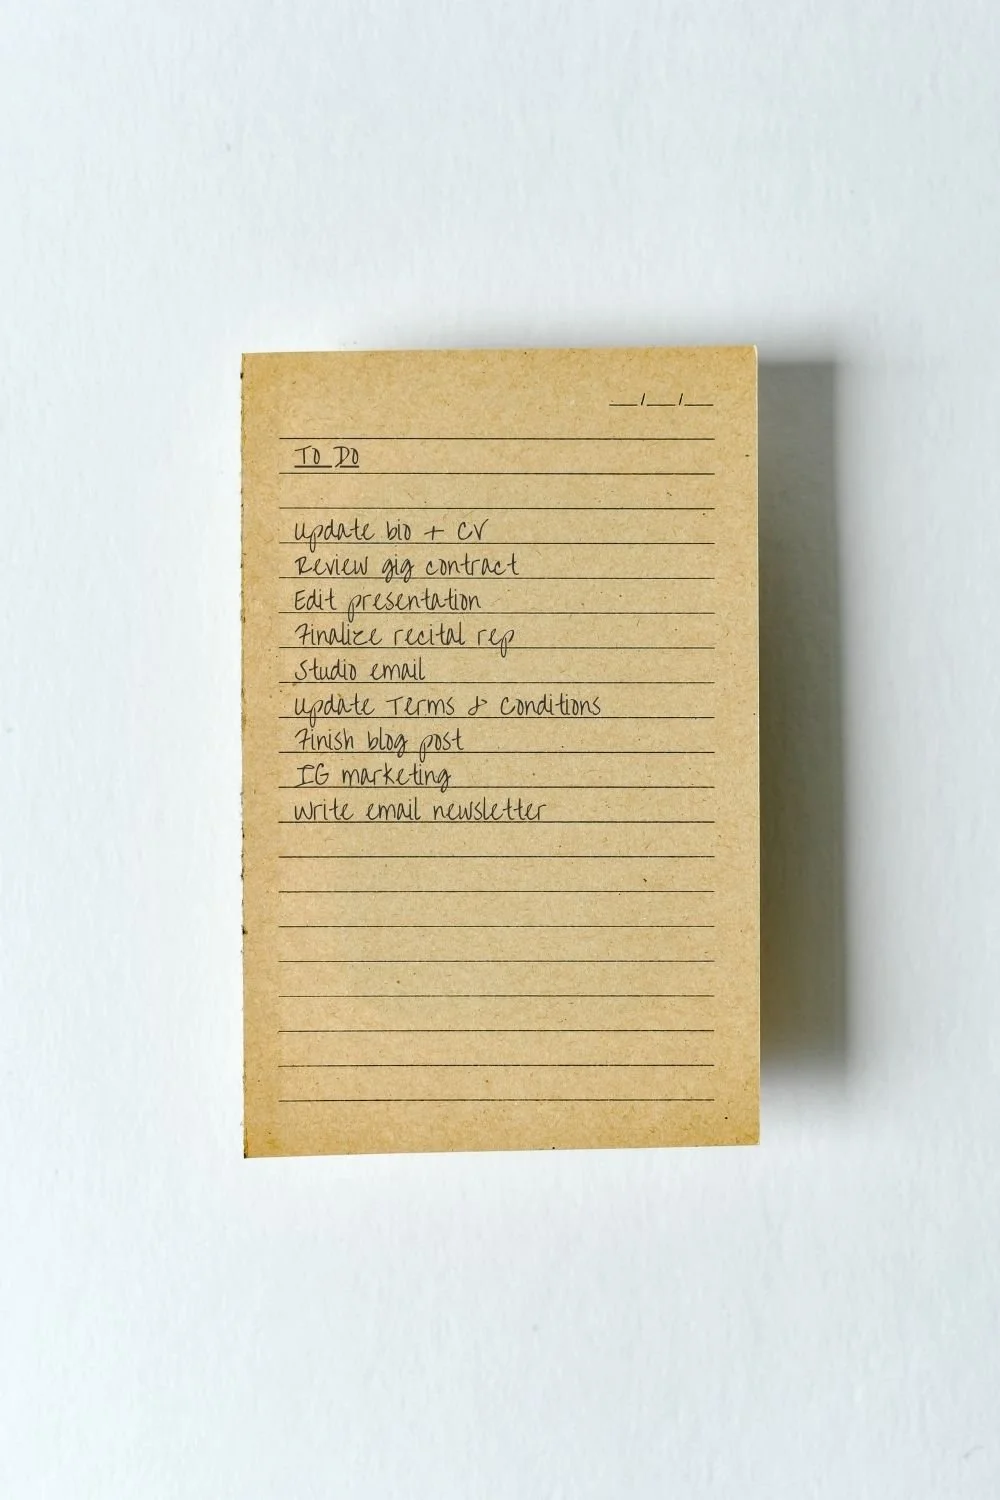 __/__/__
TO DO
Update bio + CV
Review gig contract
Edit presentation
Finalize recital rep
Studio email
Update Terms & Conditions
Finish blog post
IG marketing
Write email newsletter